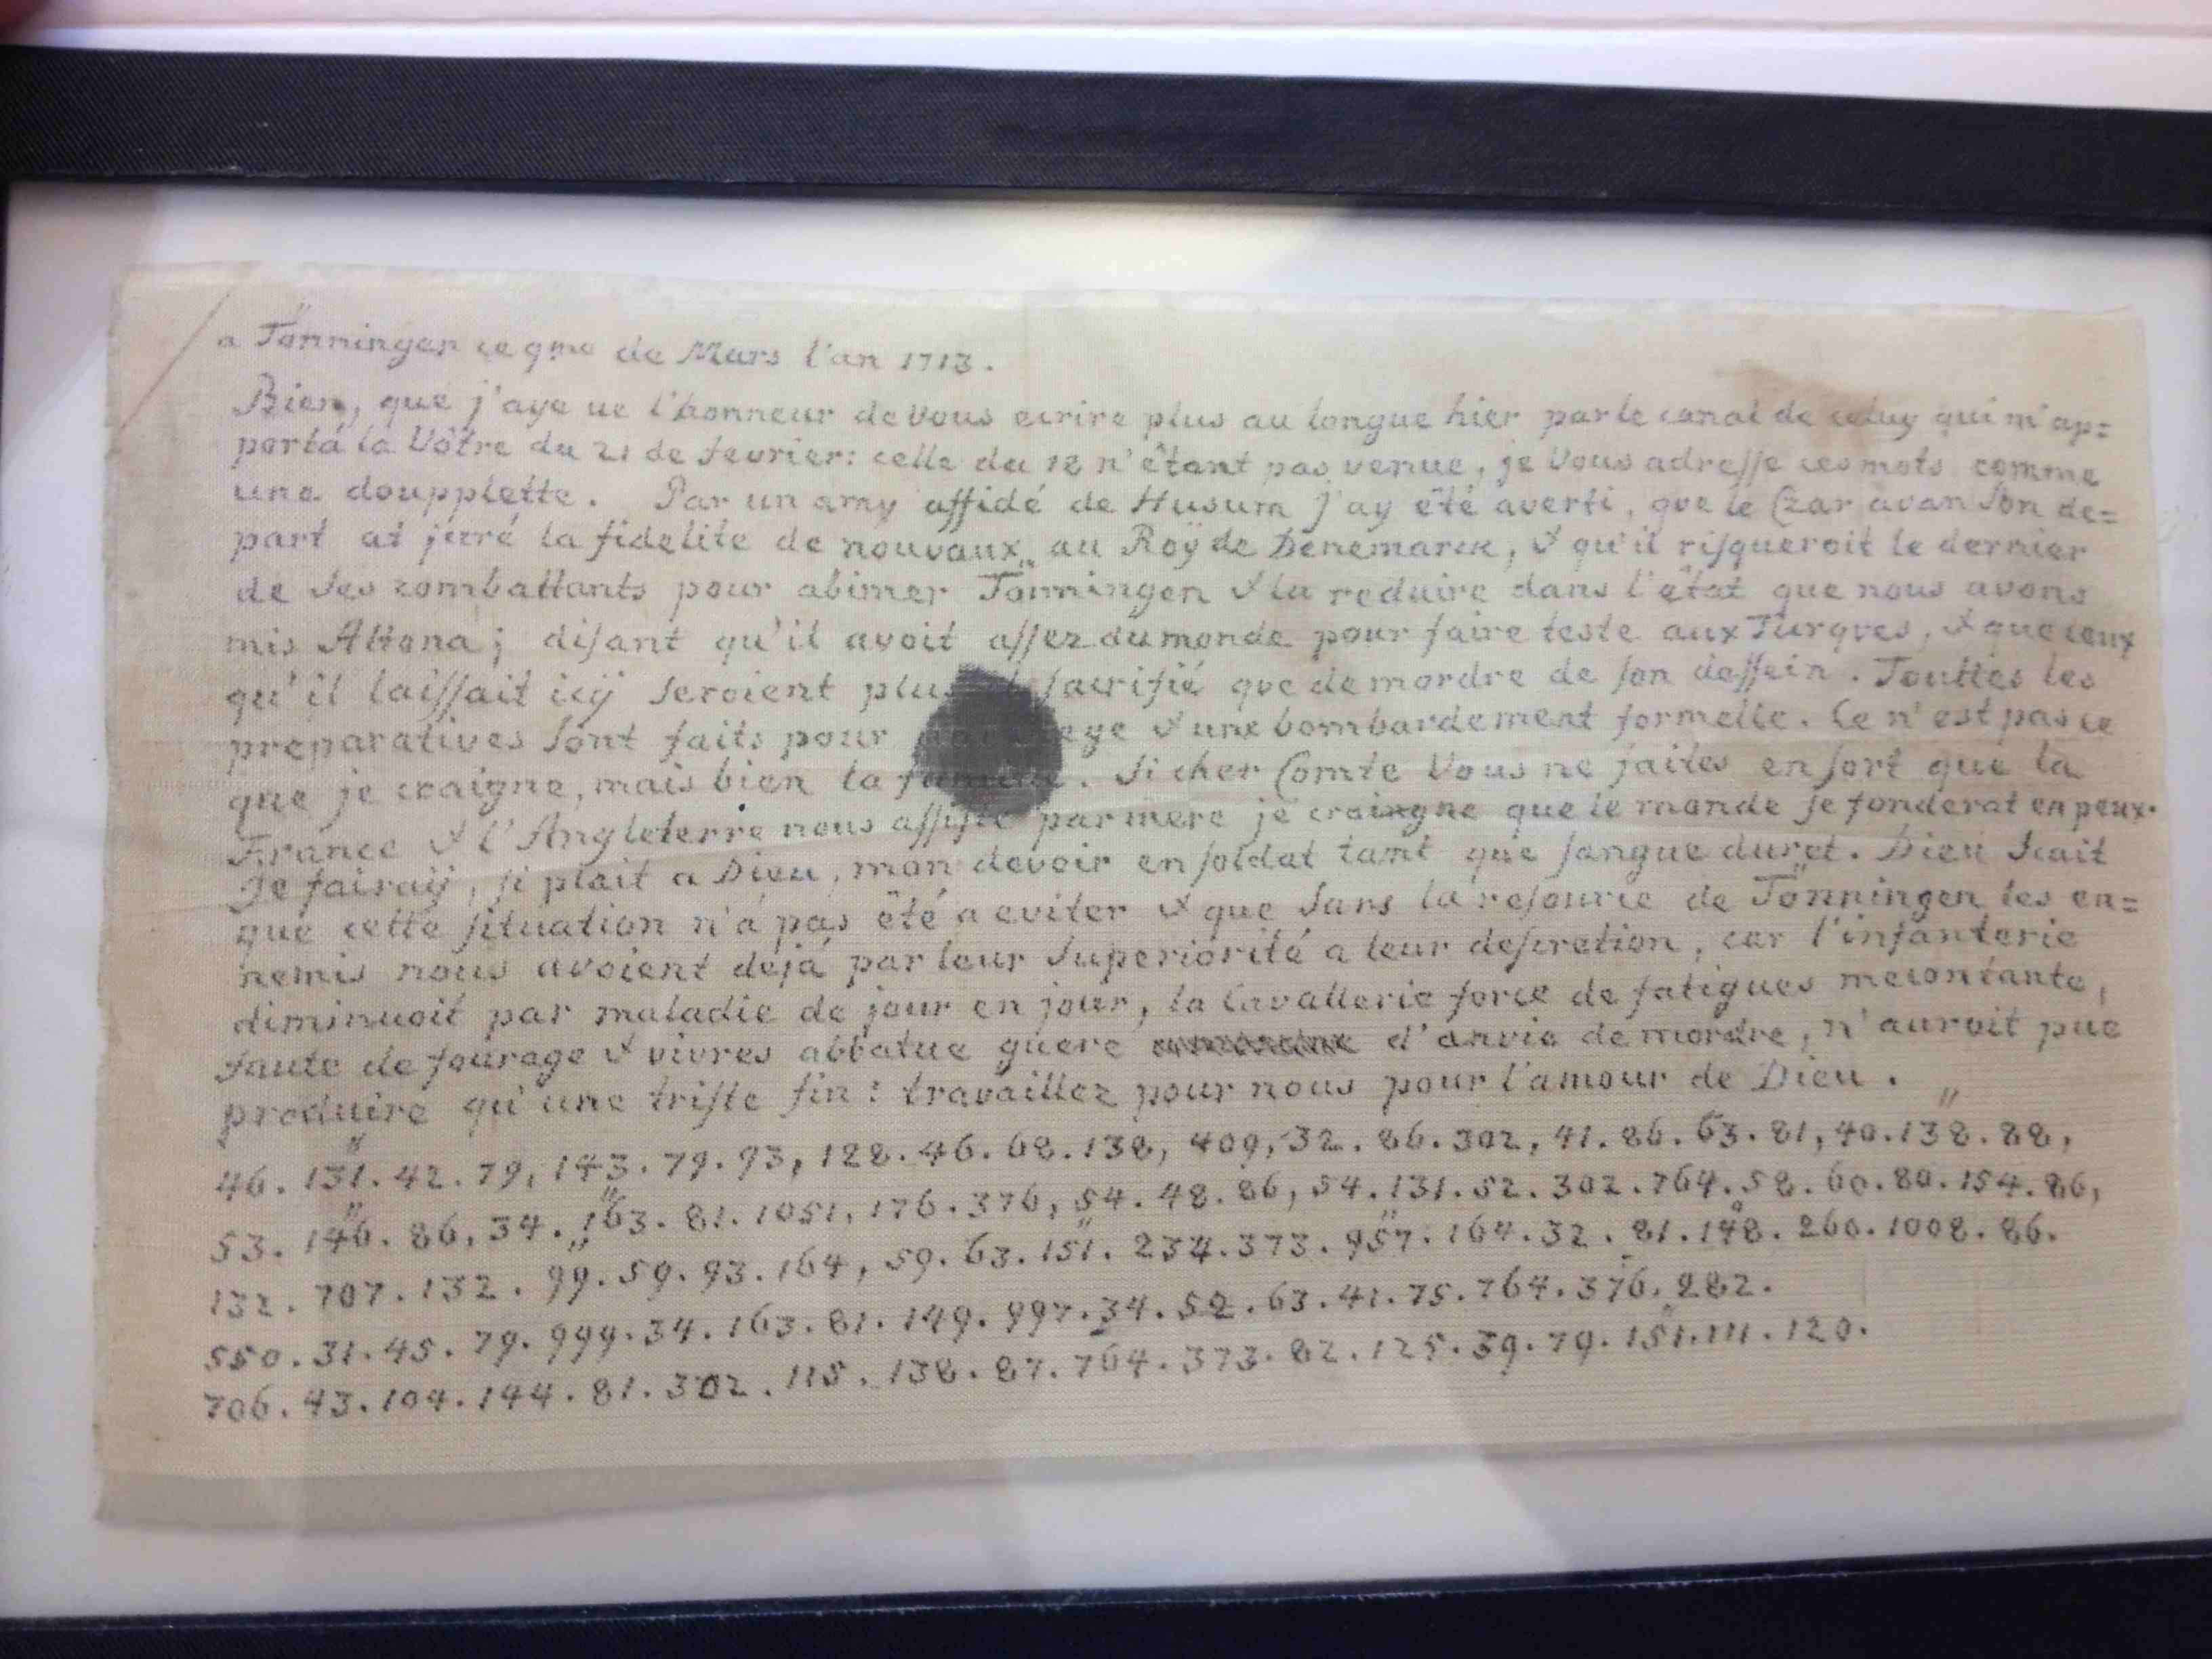 a Tönningen ce 9me de Mars l'an 1713.
Bien, que j'aye ue l'honneur de Vous ecrire plus au longue hier par le canal de celuy qui m'ap=
porta la Vôtre du 21 de fevrier: celle du 12 n'êtant pas venue, je Vous adresse ces mots comme
une doupplette. Par un amy affidé de Husum j'ay été averti, que le Czar avan son de=
part at juré la fidelite de nouvaux au Roÿ de Denemarck, & qu'il risqueroit le dernier
de ses combattants pour abimer Tönningen & la reduire dans l'êtat que nous avons
mis Altona; disant qu'il avoit assez du monde pour faire teste aux Turqves, & que ceux
qu'il laissait icÿ seroient plus sacrifié qve de mordre de son dessein. Touttes les
preparatives sont faits pour & une bombardement formelle. Ce n'est pas ce
que je craigne, mais bien la famine. Si cher Comte Vous ne faites en sort que la
France & l'Angleterre nous assiste par mere je craingne que le monde se fonderat en peux.
Je fairaÿ, si plait a Dieu, mon devoir en soldat tant que sangue duret. Dieu scait
que cette situation n'a pas été a eviter & que sans la resource de Tönningen les en=
nemis nous avoient dejá par leur superiorité a leur descretion, car l'infanterie
diminuoit par maladie de jour en jour, la Cavallerie force de fatigues mecontante,
faute de fourage & vivres abbatue guere d'anvie de mordre, n'auroit pue
produire qu'une triste fin: travaillez pour nous pour l'amour de Dieu.
46. 131. 42. 79, 143. 79. 93, 128. 46. 68. 138, 409, 32. 86. 302, 41. 86. 63. 81, 40. 138. 88,
53. 146. 86, 34. 163. 81. 1051, 176. 376, 54. 48. 86, 54. 131. 52. 302. 764. 58. 60. 80. 154. 86,
132. 707. 132. 99. 59. 93. 164, 59. 63. 151. 234. 373. 957. 164. 32. 81. 148. 260. 1008. 86.
550. 31. 45. 79. 999. 34. 163. 81. 149. 997. 34. 52. 63. 41. 75. 764. 376. 282.
706. 43. 104. 144. 81. 302. 115. 138. 87. 764. 373. 82. 125. 39. 79. 151. 111. 120.